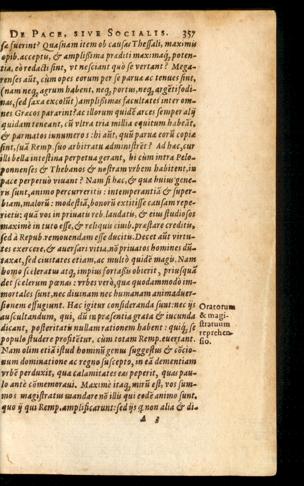 DE PACE, SIVE SOCIALIS. 357
sæ fuerint? Quasnam item ob causas Thessali, maximis
opib. acceptis, & amplissima præditi maximaq́; poten-
tia, eò redacti sint, vt nesciant quò se vertant? Mega-
renses aũt, cùm opes eorum per se paruæ ac tenues sint,
(nam neq; agrum habent, neq; portus, neq; argẽtifodi-
nas, sed saxa excolũt) amplissimas facultates inter om-
nes Græcos pararint? ac illorum quidẽ arces semper alij
quidam teneant, cũ vltra tria millia equitum habeãt,
& parmatos innumeros: hi aũt, quũ parua eorũ copia
sint, suã Remp. suo arbitratu administrẽt? Ad hæc, cur
illis bella intestina perpetua gerant, hi cùm intra Pelo-
ponnenses & Thebanos & nostram vrbem habitent, in
pace perpetuò viuant? Nam si hæc, & quæ huius gene-
ris sunt, animo percurreritis: intemperantiã & super-
biam, malorũ: modestiã, bonorũ extitisse causam repe-
rietis: quã vos in priuatis reb. laudatis, & eius studiosos
maximè in tuto esse, & reliquis ciuib. præstare creditis,
sed à Repub. remouendam esse ducitis. Decet aũt virtu-
tes exercere, & auersari vitia, nõ priuatos homines dũ-
taxat, sed ciuitates etiam, ac multò quidẽ magis. Nam
homo sceleratus atq́; impius fortassis obierit, priusquã
det scelerum pœnas: vrbes verò, quæ quodammodo im-
mortales sunt, nec diuinam nec humanam animaduer-
sionem effugiunt. Hac igitur consideranda sunt: nec ijs
auscultandum, qui, dũ in præsentia grata & iucunda
dicant, posteritatis nullam rationem habent: quiq́; se
populo studere profitẽtur, cùm totam Remp. euertant.
Nam olim etiã istud hominũ genus suggestus & cõcio-
num dominatione ac regno suscepto, in eã dementiam
vrbẽ perduxit, qua calamitates eas peperit, quas pau-
lo antè cõmemoraui. Maximè itaq́; mirũ est, vos sum-
mos magistratus mandare nõ illis qui eodẽ animo sunt,
quo ij qui Remp. amplificarunt: sed ijs q non alia & di-
Oratorum
& magi-
stratuum
reprehen-
sio.